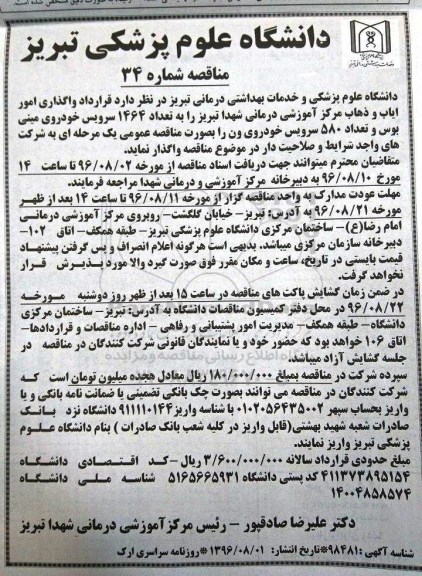 دانشگاه علوم پزشکی تبریز
مناقصه شماره ۳۴
دانشگاه علوم پزشکی و خدمات بهداشتی درمانی تبریز در نظر دارد قرارداد واگذاری امور
ایاب و ذهاب مرکز آموزشی درمانی شهدا تبریز را به تعداد ۱۴۶۴ سرویس خودروی مینی
بوس و تعداد ۵۸۰ سرویس خودروی ون را بصورت مناقصه عمومی یک مرحله ای به شرکت
های واجد شرایط و صلاحیت دار در موضوع مناقصه واگذار نماید.
متقاضیان محترم میتوانند جهت دریافت اسناد مناقصه از مورخه ۹۶/۰۸/۰۲ تا ساعت ۱۴
مورخ ۹۶/۰۸/۱۰ به دبیرخانه مرکز آموزشی و درمانی شهدا مراجعه فرمایند.
مهلت عودت مدارک به واحد مناقصه گزار از مورخه ۹۶/۰۸/۱۱ تا ساعت ۱۴ بعد از ظهر
مورخه ۹۶/۰۸/۲۱ به آدرس: تبریز– خیابان گلگشت– روبروی مرکز آموزشی درمانی
امام رضا(ع)– ساختمان مرکزی دانشگاه علوم پزشکی تبریز– طبقه همکف– اتاق ۱۰۲–
دبیرخانه سازمان مرکزی میباشد. بدیهی است هرگونه اعلام انصراف و پس گرفتن پیشنهاد
قیمت بایستی در تاریخ، ساعت و مکان مقرر فوق صورت گیرد والا مورد پذیرش قرار
نخواهد گرفت.
در ضمن زمان گشایش پاکت های مناقصه در ساعت ۱۵ بعد از ظهر روز دوشنبه مورخه
۹۶/۰۸/۲۲ در محل دفتر کمیسیون مناقصات دانشگاه به آدرس: تبریز– ساختمان مرکزی
دانشگاه– طبقه همکف– مدیریت امور پشتیبانی و رفاهی – اداره مناقصات و قراردادها–
اتاق ۱۰۶ خواهد بود که حضور خود و یا نمایندگان قانونی شرکت کنندگان در مناقصه در
جلسه گشایش آزاد میباشد.
سپرده شرکت در مناقصه بمبلغ ۱۸۰/۰۰۰/۰۰۰ ریال معادل هجده میلیون تومان است که
شرکت کنندگان در مناقصه می توانند بصورت چک بانکی تضمینی یا ضمانت نامه بانکی و یا
واریز بحساب سپهر ۰۱۰۲۰۵۶۴۳۵۰۰۲ با شناسه واریز ۹۱۱۱۱۰۱۴۴ دانشگاه نزد بانک
صادرات شعبه شهید بهشتی(قابل واریز در کلیه شعب بانک صادرات ) بنام دانشگاه علوم
پزشکی تبریز واریز نمایند.
مبلغ حدودی قرارداد سالانه ۳/۶۰۰/۰۰۰/۰۰۰ ریال –کد اقتصادی دانشگاه
۴۱۱۳۷۳۸۹۵۱۵۴ کد پستی دانشگاه ۵۱۶۵۶۶۵۹۳۱ شناسه ملی دانشگاه
۱۴۰۰۴۸۵۸۵۷۴
دکتر علیرضا صادقپور – رئیس مرکزآموزشی درمانی شهدا تبریز
شناسه آگهی :۹۸۴۸۱*تاریخ انتشار: ۱۳۹۶/۰۸/۰۱ *روزنامه سراسری ارک